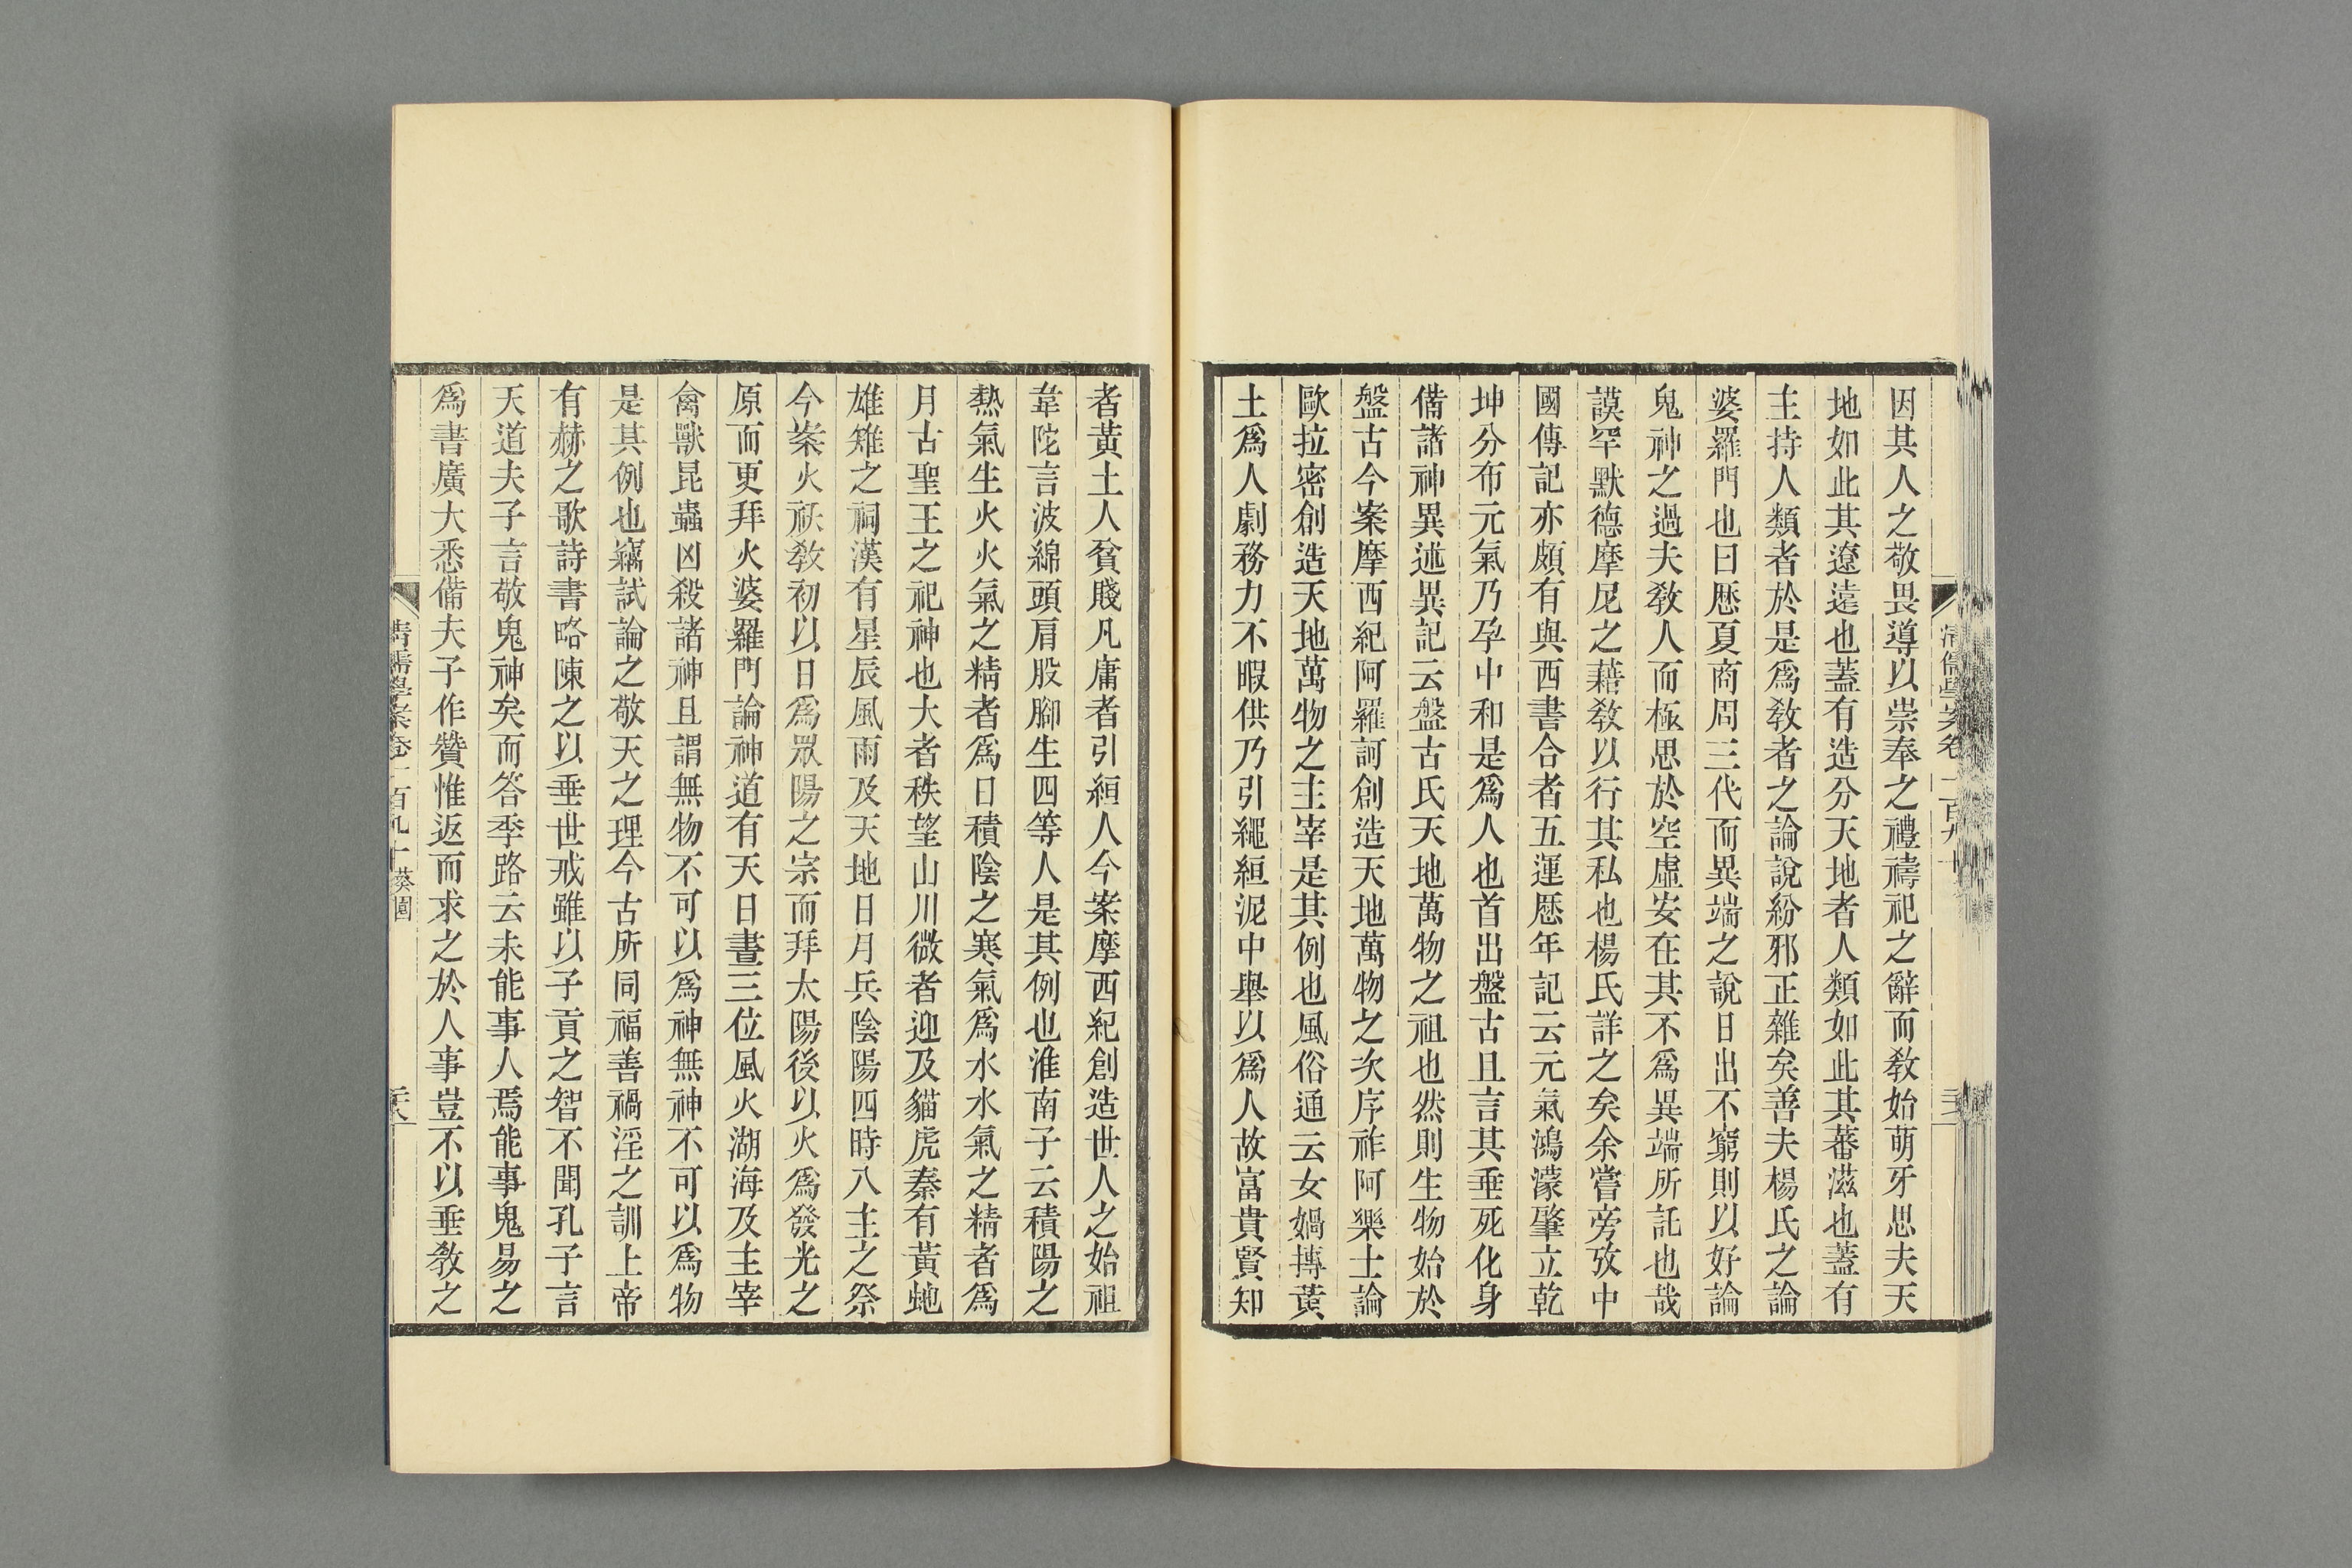 因其人之敬畏導以崇奉之禮禱祀之辭而敎始萌牙思夫天
地如此其遼遠也蓋有造分天地者人類如此其蕃滋也蓋有
主持人類者於是爲敎者之論說紛邪正雜矣善夫楊氏之論
婆羅門也曰歷夏商周三代而異端之說日出不窮則以好論
鬼神之過夫敎人而極思於空虛安在其不爲異端所託也哉
謨罕默德摩尼之藉敎以行其私也楊氏詳之矣余嘗旁攷中
國傳記亦頗有與西書合者五運歷年記云元氣鴻濛肇立乾
坤分布元氣乃孕中和是爲人也首出盤古且言其垂死化身
備諸神異述異記云盤古氏天地萬物之祖也然則生物始於
盤古今案摩西紀阿羅訶創造天地萬物之次序祚阿樂士論
歐拉密創造天地萬物之主宰是其例也風俗通云女媧摶黃
土爲人劇務力不暇供乃引繩絙泥中舉以爲人故富貴賢知
者黃土人貧賤凡庸者引絙人今案摩西紀創造世人之始祖
韋陀言波綿頭肩股腳生四等人是其例也淮南子云積陽之
熱氣生火火氣之精者爲日積陰之寒氣爲水水氣之精者爲
月古聖王之祀神也大者秩望山川微者迎及貓虎秦有黃虵
雄雉之祠漢有星辰風雨及天地日月兵陰陽四時八主之祭
今案火祅敎初以日爲眾陽之宗而拜太陽後以火爲發光之
原而更拜火婆羅門論神道有天日晝三位風火湖海及主宰
禽獸昆蟲凶殺諸神且謂無物不可以爲神無神不可以爲物
是其例也竊試論之敬天之理今古所同福善禍淫之訓上帝
有赫之歌詩書略陳之以垂世戒雖以子貢之智不聞孔子言
天道夫子言敬鬼神矣而答季路云未能事人焉能事鬼易之
爲書廣大悉備夫子作贊惟返而求之於人事豈不以垂敎之
清儒學案卷一百九十 葵園